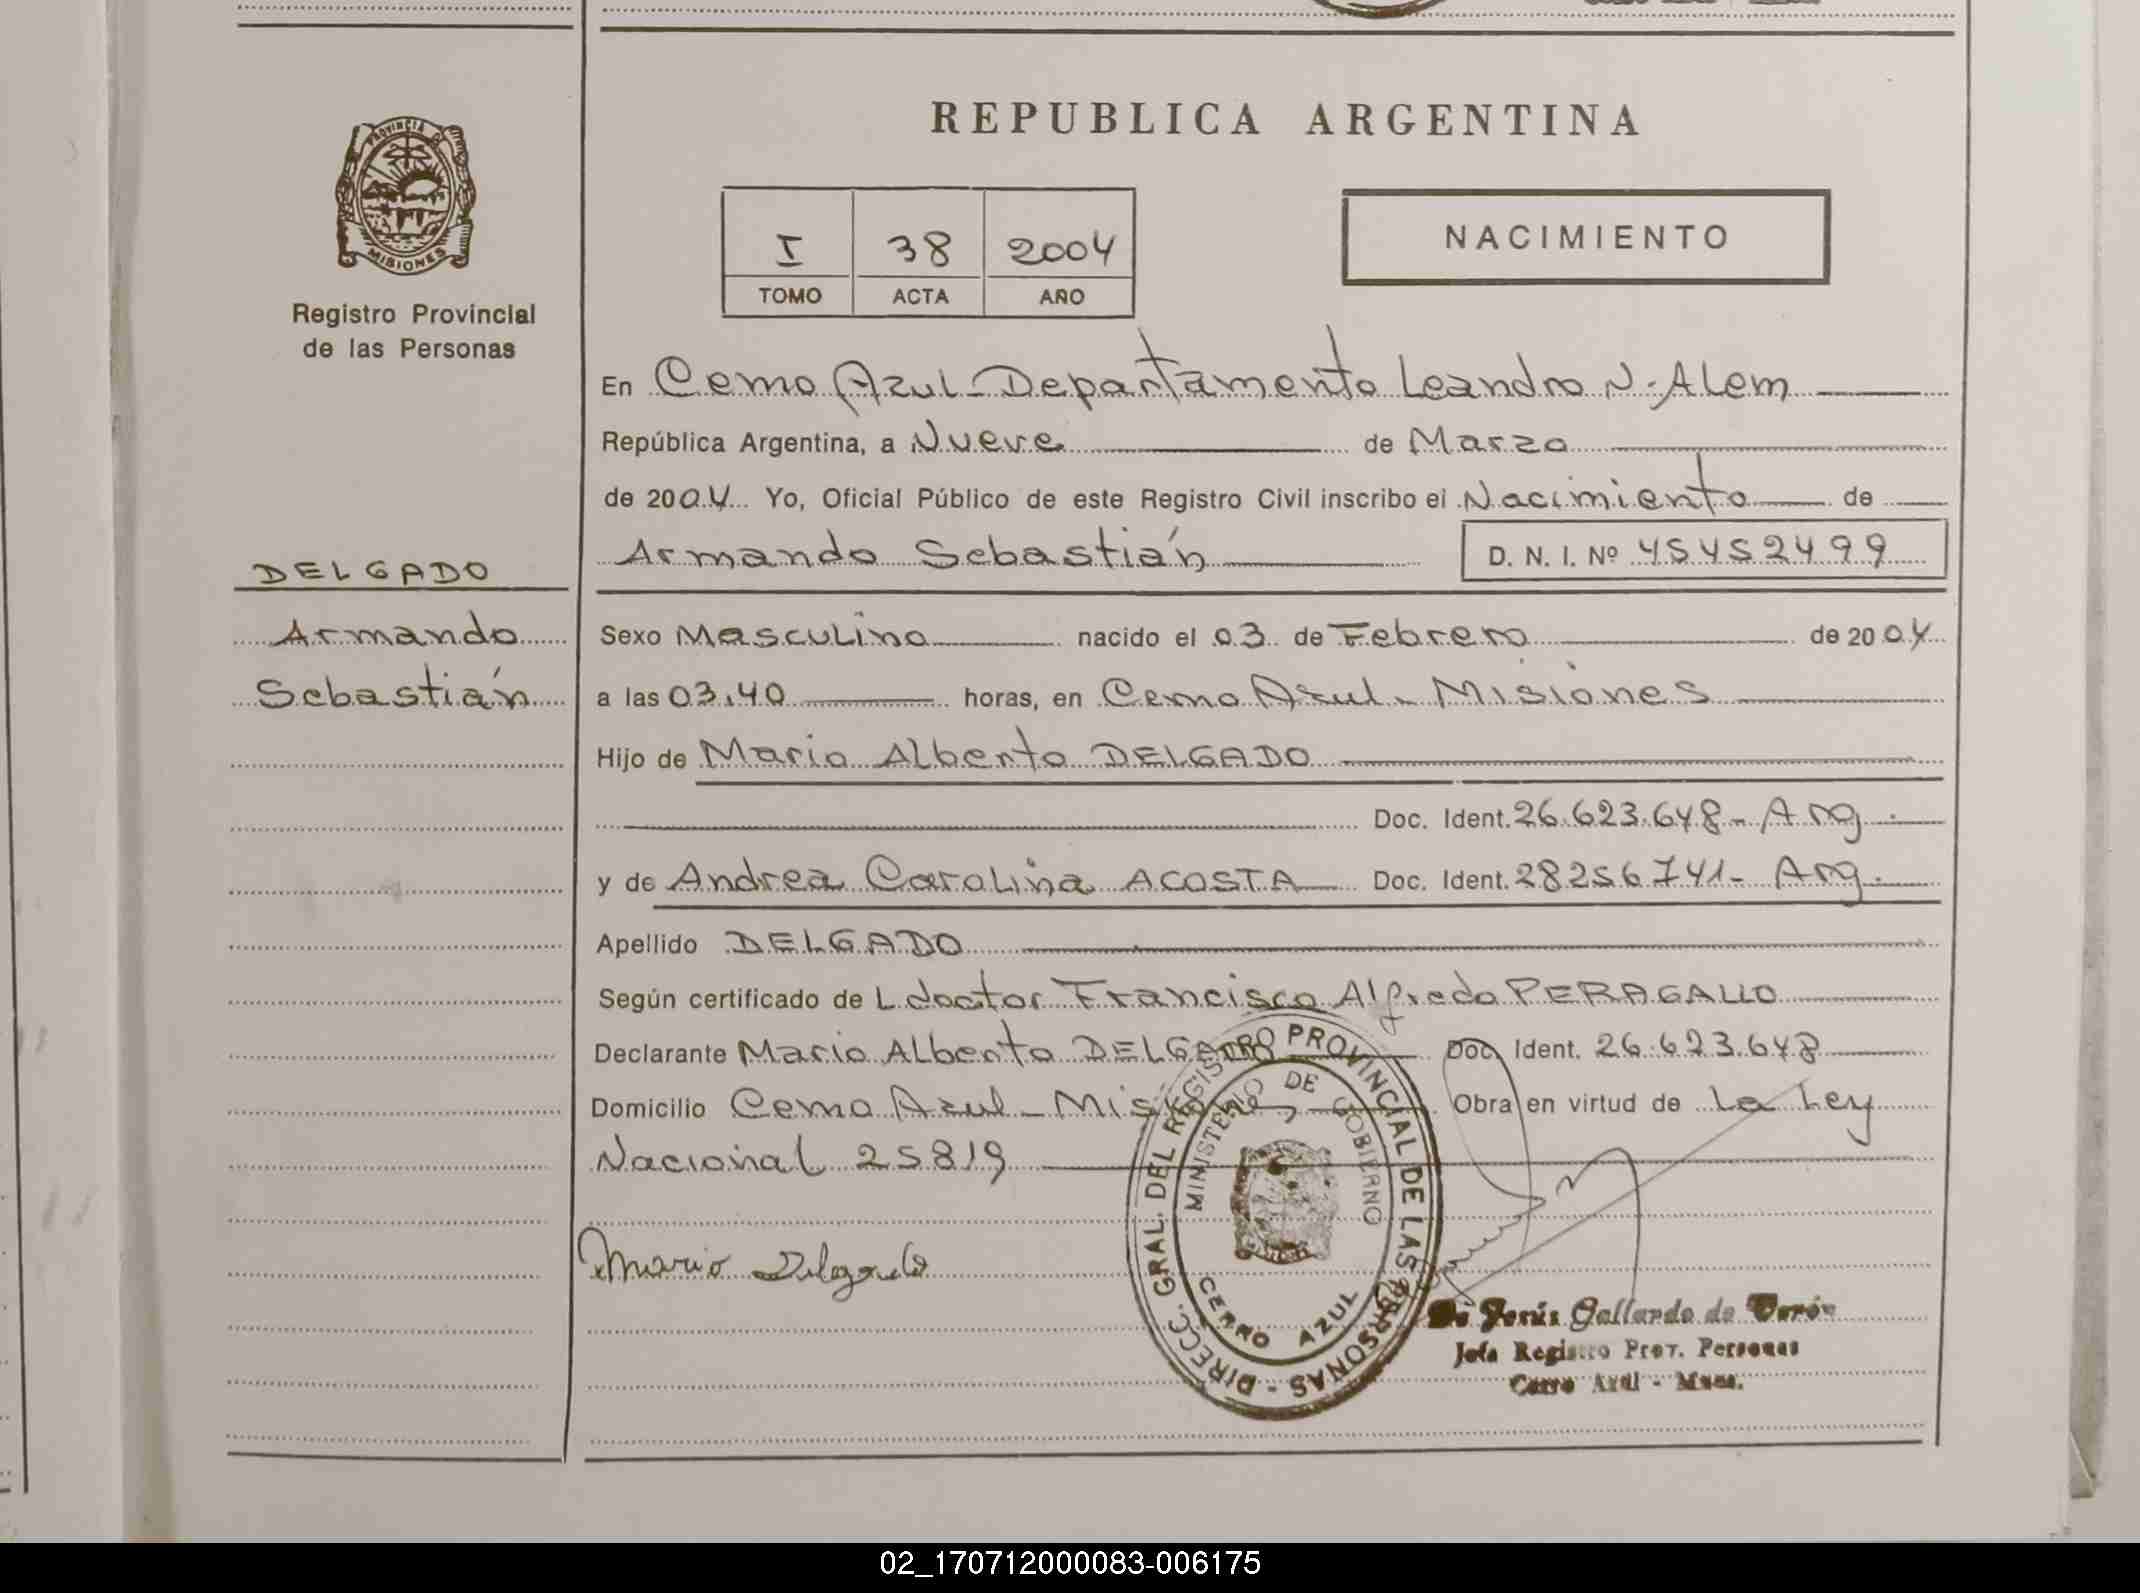 REPUBLICA ARGENTINA
PROVINCIA D MISIONES
Registro Provincial
de las Personas
I 38 2004
TOMO ACTA AÑO
NACIMIENTO
En Cerro Azul - Departamento Leandro N. Alem
República Argentina, a Nueve de Marzo
de 2004 Yo, Oficial Público de este Registro Civil inscribo el Nacimiento de
Armando Sebastián D. N. I. Nº 45452499
DELGADO
Armando
Sebastián
Sexo Masculino nacido el 03 de Febrero de 2004
a las 03.40 horas, en Cerro Azul - Misiones
Hijo de Mario Alberto DELGADO
Doc. Ident. 26.623.648 - Arg.
y de Andrea Carolina ACOSTA Doc. Ident. 28256741 - Arg.
Apellido DELGADO
Según certificado de L doctor Francisco Alfredo PERAGALLO
Declarante Mario Alberto DELGADO Doc. Ident. 26.623.648
Domicilio Cerro Azul - Misiones Obra en virtud de La Ley
Nacional 25819
Mario Delgado
DIRECC. GRAL. DEL REGISTRO PROVINCIAL DE LAS PERSONAS -
MINISTERIO DE GOBIERNO
CERRO AZUL
Jesús Gallardo de Verón
Jefa Registro Prov. Personas
Cerro Azul - Mnes.
02_170712000083-006175